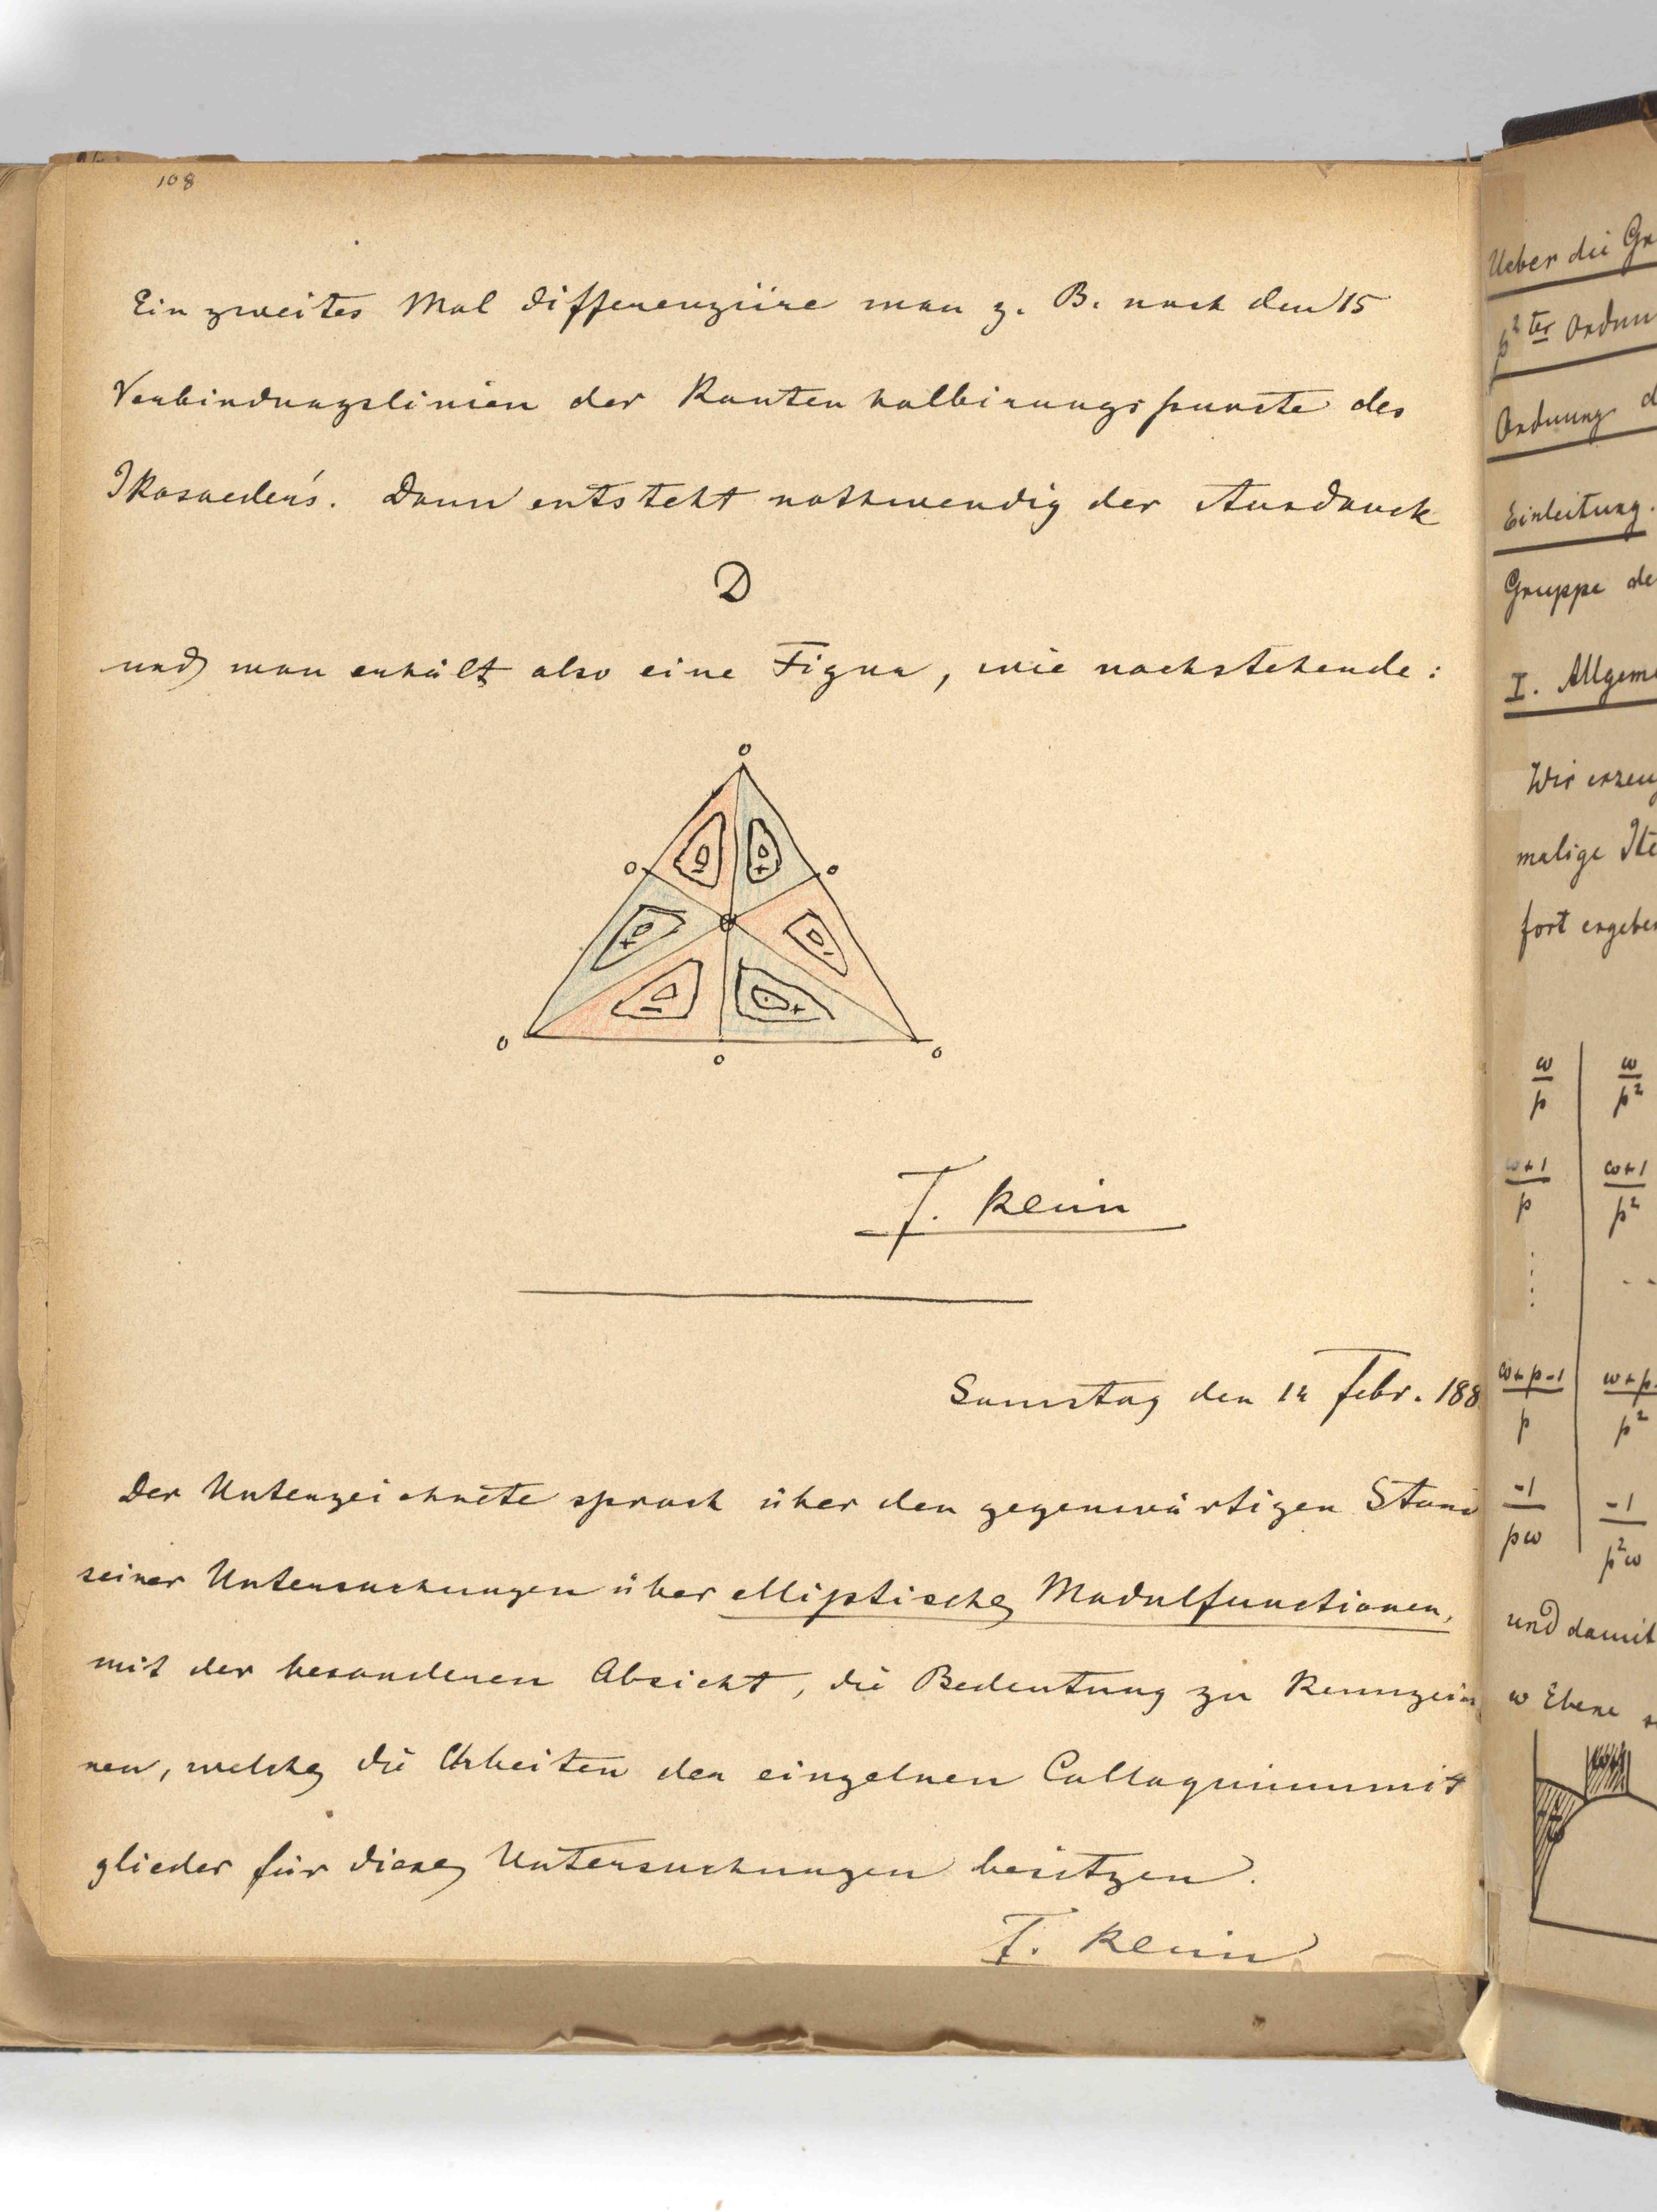 108
Ein zweites Mal differenziire man z. B. nach den 15
Verbindungslinien der Kantenhalbirungspuncte des
Ikosaeder's. Dann entsteht nothwendig der Ausdruck
D
und man erhält also eine Figur, wie nachstehende:
o
o o
o o
o
F. Klein
Samstag den Febr. 188
Der Unterzeichnete sprach über den gegenwärtigen Stand
seiner Untersuchungen über elliptische Modulfunctionen,
mit der besonderen Absicht, die Bedeutung zu
nen, welche die Arbeiten der einzelnen Colloquiummit
glieder für diese Untersuchungen besitzen.
F. Klein
Ueber die Gr
p² ter Ordnu
Ordnung d
Einleitung.
Gruppe de
I. Allgeme
Wir erzeu
malige Ite
fort ergeben
ω/p ω/p²
ω+1/p ω+1/p²
ω+p-1/p ω+p-/p²
-1/pω -1/p²ω
und damit
ω Ebene